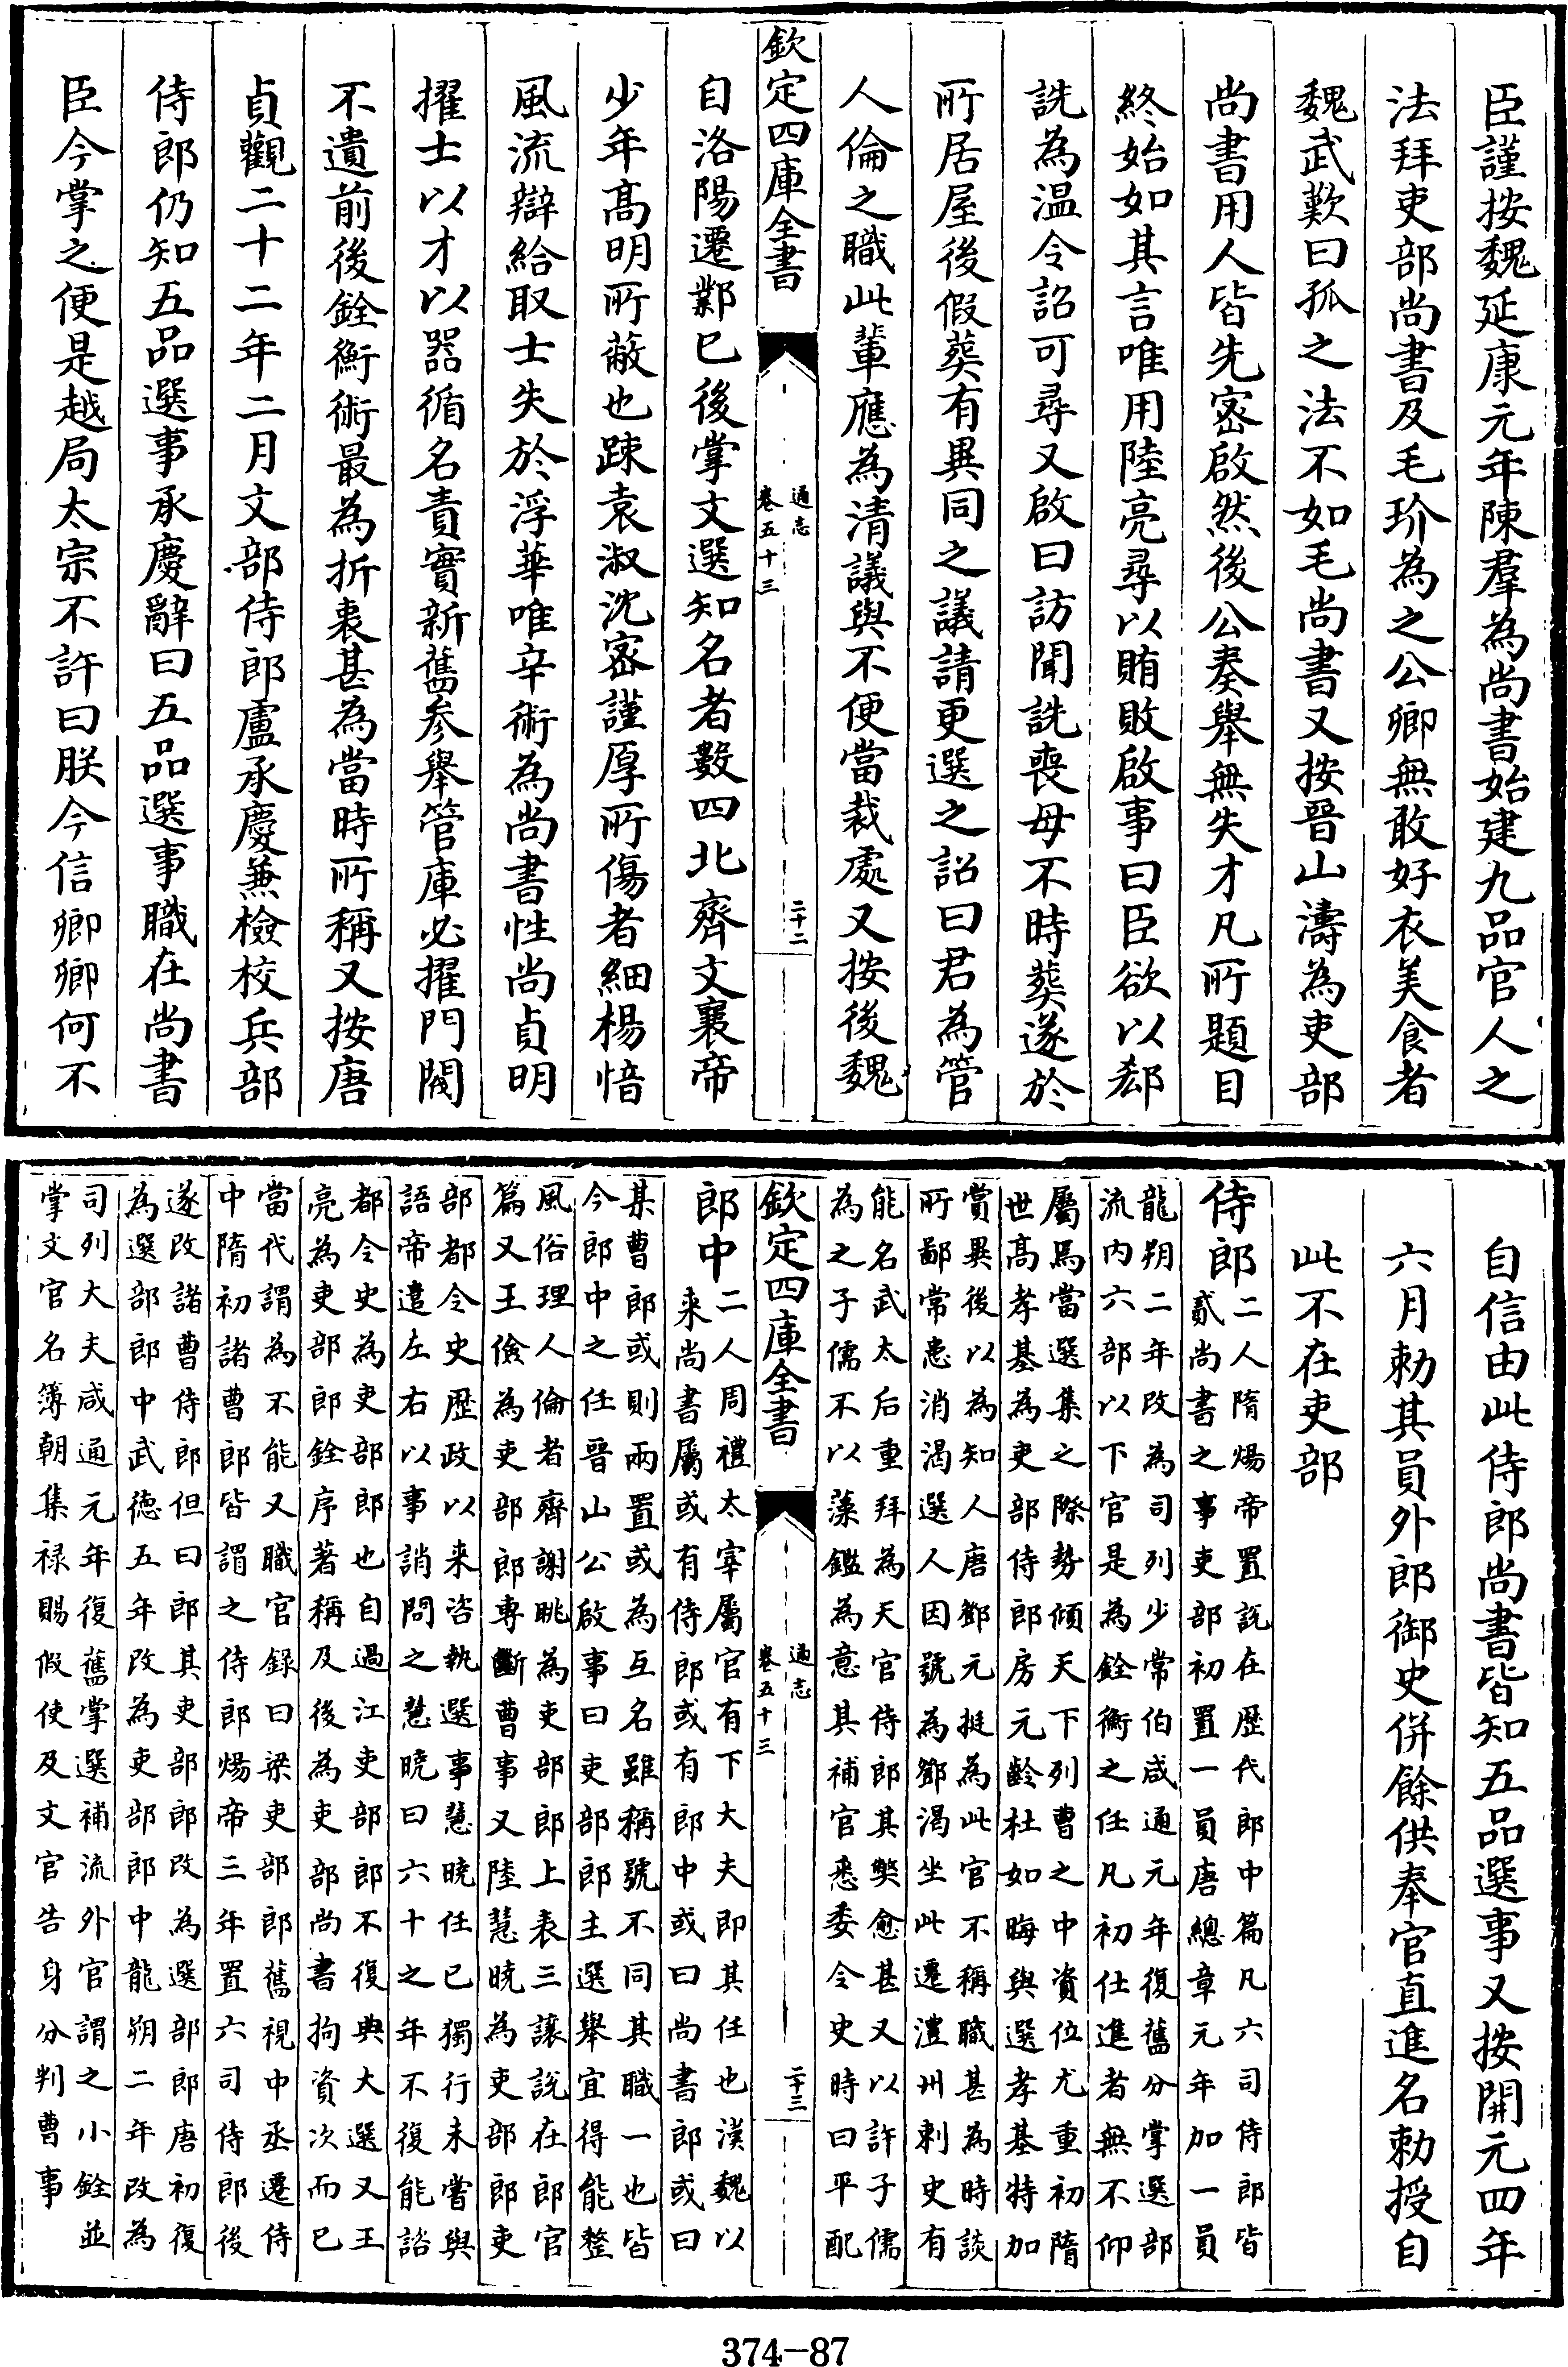 臣謹按魏延康元年陳羣為尚書始建九品官人之
法拜吏部尚書及毛玠為之公卿無敢好衣美食者
魏武歎曰孤之法不如毛尚書又按晉山濤為吏部
尚書用人皆先密啟然後公奏舉無失才凡所題目
終始如其言唯用陸亮尋以賄敗啟事曰臣欲以郄
詵為温令詔可尋又啟曰訪聞詵喪母不時葬遂於
所居屋後假葬有異同之議請更選之詔曰君為管
人倫之職此輩應為清議與不便當裁處又按後魏
欽定四庫全書
通志
卷五十三
二十二
自洛陽遷鄴已後掌文選知名者數四北齊文襄帝
少年髙明所蔽也疎袁淑沈密謹厚所傷者細楊愔
風流辯給取士失於浮華唯辛術為尚書性尚貞明
擢士以才以器循名責實新舊参舉管庫必擢門閥
不遺前後銓衡術最為折衷甚為當時所稱又按唐
貞觀二十二年二月文部侍郎盧承慶兼檢校兵部
侍郎仍知五品選事承慶辭曰五品選事職在尚書
臣今掌之便是越局太宗不許曰朕今信卿卿何不
自信由此侍郎尚書皆知五品選事又按開元四年
六月勅其員外郎御史併餘供奉官直進名勅授自
此不在吏部
侍郎二人隋煬帝置説在歴代郎中篇凡六司侍郎皆
貳尚書之事吏部初置一員唐總章元年加一員
龍朔二年改為司列少常伯咸通元年復舊分掌選部
流内六部以下官是為銓衡之任凡初仕進者無不仰
屬焉當選集之際勢傾天下列曹之中資位尤重初隋
世髙孝基為吏部侍郎房元齡杜如晦與選孝基特加
賞異後以為知人唐鄧元挺為此官不稱職甚為時談
所鄙常患消渴選人因號為鄧渴坐此遷澧州刺史有
能名武太后重拜為天官侍郎其弊愈甚又以許子儒
為之子儒不以藻鑑為意其補官悉委令史時曰平配
欽定四庫全書
通志
卷五十三
二十三
郎中二人周禮太宰屬官有下大夫即其任也漢魏以
来尚書屬或有侍郎或有郎中或曰尚書郎或曰
某曹郎或則兩置或為互名雖稱號不同其職一也皆
今郎中之任晉山公啟事曰吏部郎主選舉宜得能整
風俗理人倫者齊謝朓為吏部郎上表三讓説在郎官
篇又王儉為吏部郎專斷曹事又陸慧曉為吏部郎吏
部都令史歴政以来咨執選事慧曉任已獨行未嘗與
語帝遣左右以事誚問之慧曉曰六十之年不復能諮
都令史為吏部郎也自過江吏部郎不復典大選又王
亮為吏部郎銓序著稱及後為吏部尚書拘資次而已
當代謂為不能又職官録曰梁吏部郎舊視中丞遷侍
中隋初諸曹郎皆謂之侍郎煬帝三年置六司侍郎後
遂改諸曹侍郎但曰郎其吏部郎改為選部郎唐初復
為選部郎中武徳五年改為吏部郎中龍朔二年改為
司列大夫咸通元年復舊掌選補流外官謂之小銓並
掌文官名簿朝集禄賜假使及文官告身分判曹事
374-87